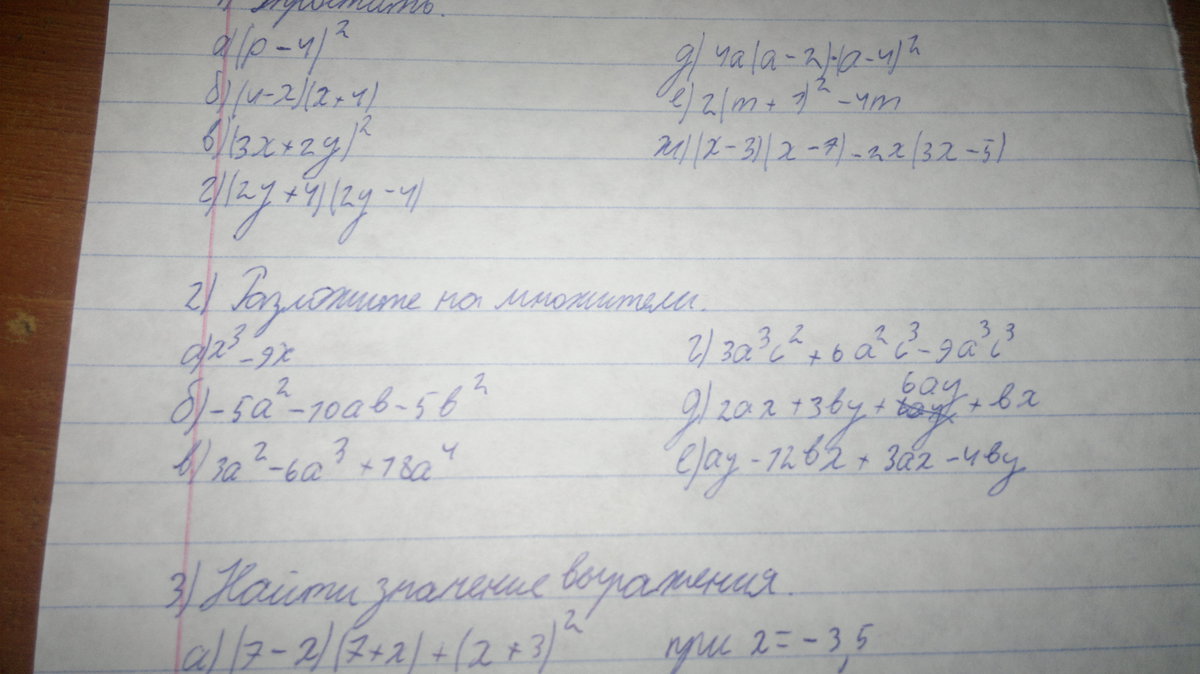 1) Упростить.
а) (p-4)²
б) (4-x)(x+4)
в) (3x+2y)²
г) (2y+4)(2y-4)
д) 4a(a-2)-(a-4)²
е) 2(m+1)²-4m
ж) (x-3)(x-7)-2x(3x-5)
2) Разложите на множители.
а) x³-9x
б) -5a²-10ab-5b²
в) 3a²-6a³+18a⁴
г) 3a³c²+6a²c³-9a³c³
д) 2ax+3by+6ay+bx
е) ay-12bx+3ax-4by
3) Найти значение выражения.
а) (7-x)(7+x)+(x+3)² при x=-3,5